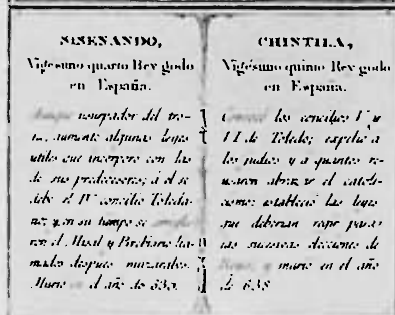 SISENANDO,
Vigésimo quarto Rey godo
en España.
usurpador del tro-
no, aumentó algunas leyes
utiles que incorporó con las
de sus predecesores; á el se
debe el IV concilio Toleda-
no; y en su tiempo se
ron el Misal y Breviario lla-
mados despues muzarabes.
Murió en el año de 635.
CHINTILA,
Vigésimo quinto Rey godo
en España.
los concilios V y
VI de Toledo; expelió á
los judios y a quantos re-
usaron abrazar el catoli-
cismo; estableció las leyes
que deberian regir para
las sucesivas elecciones de
y murió en el año
de 638